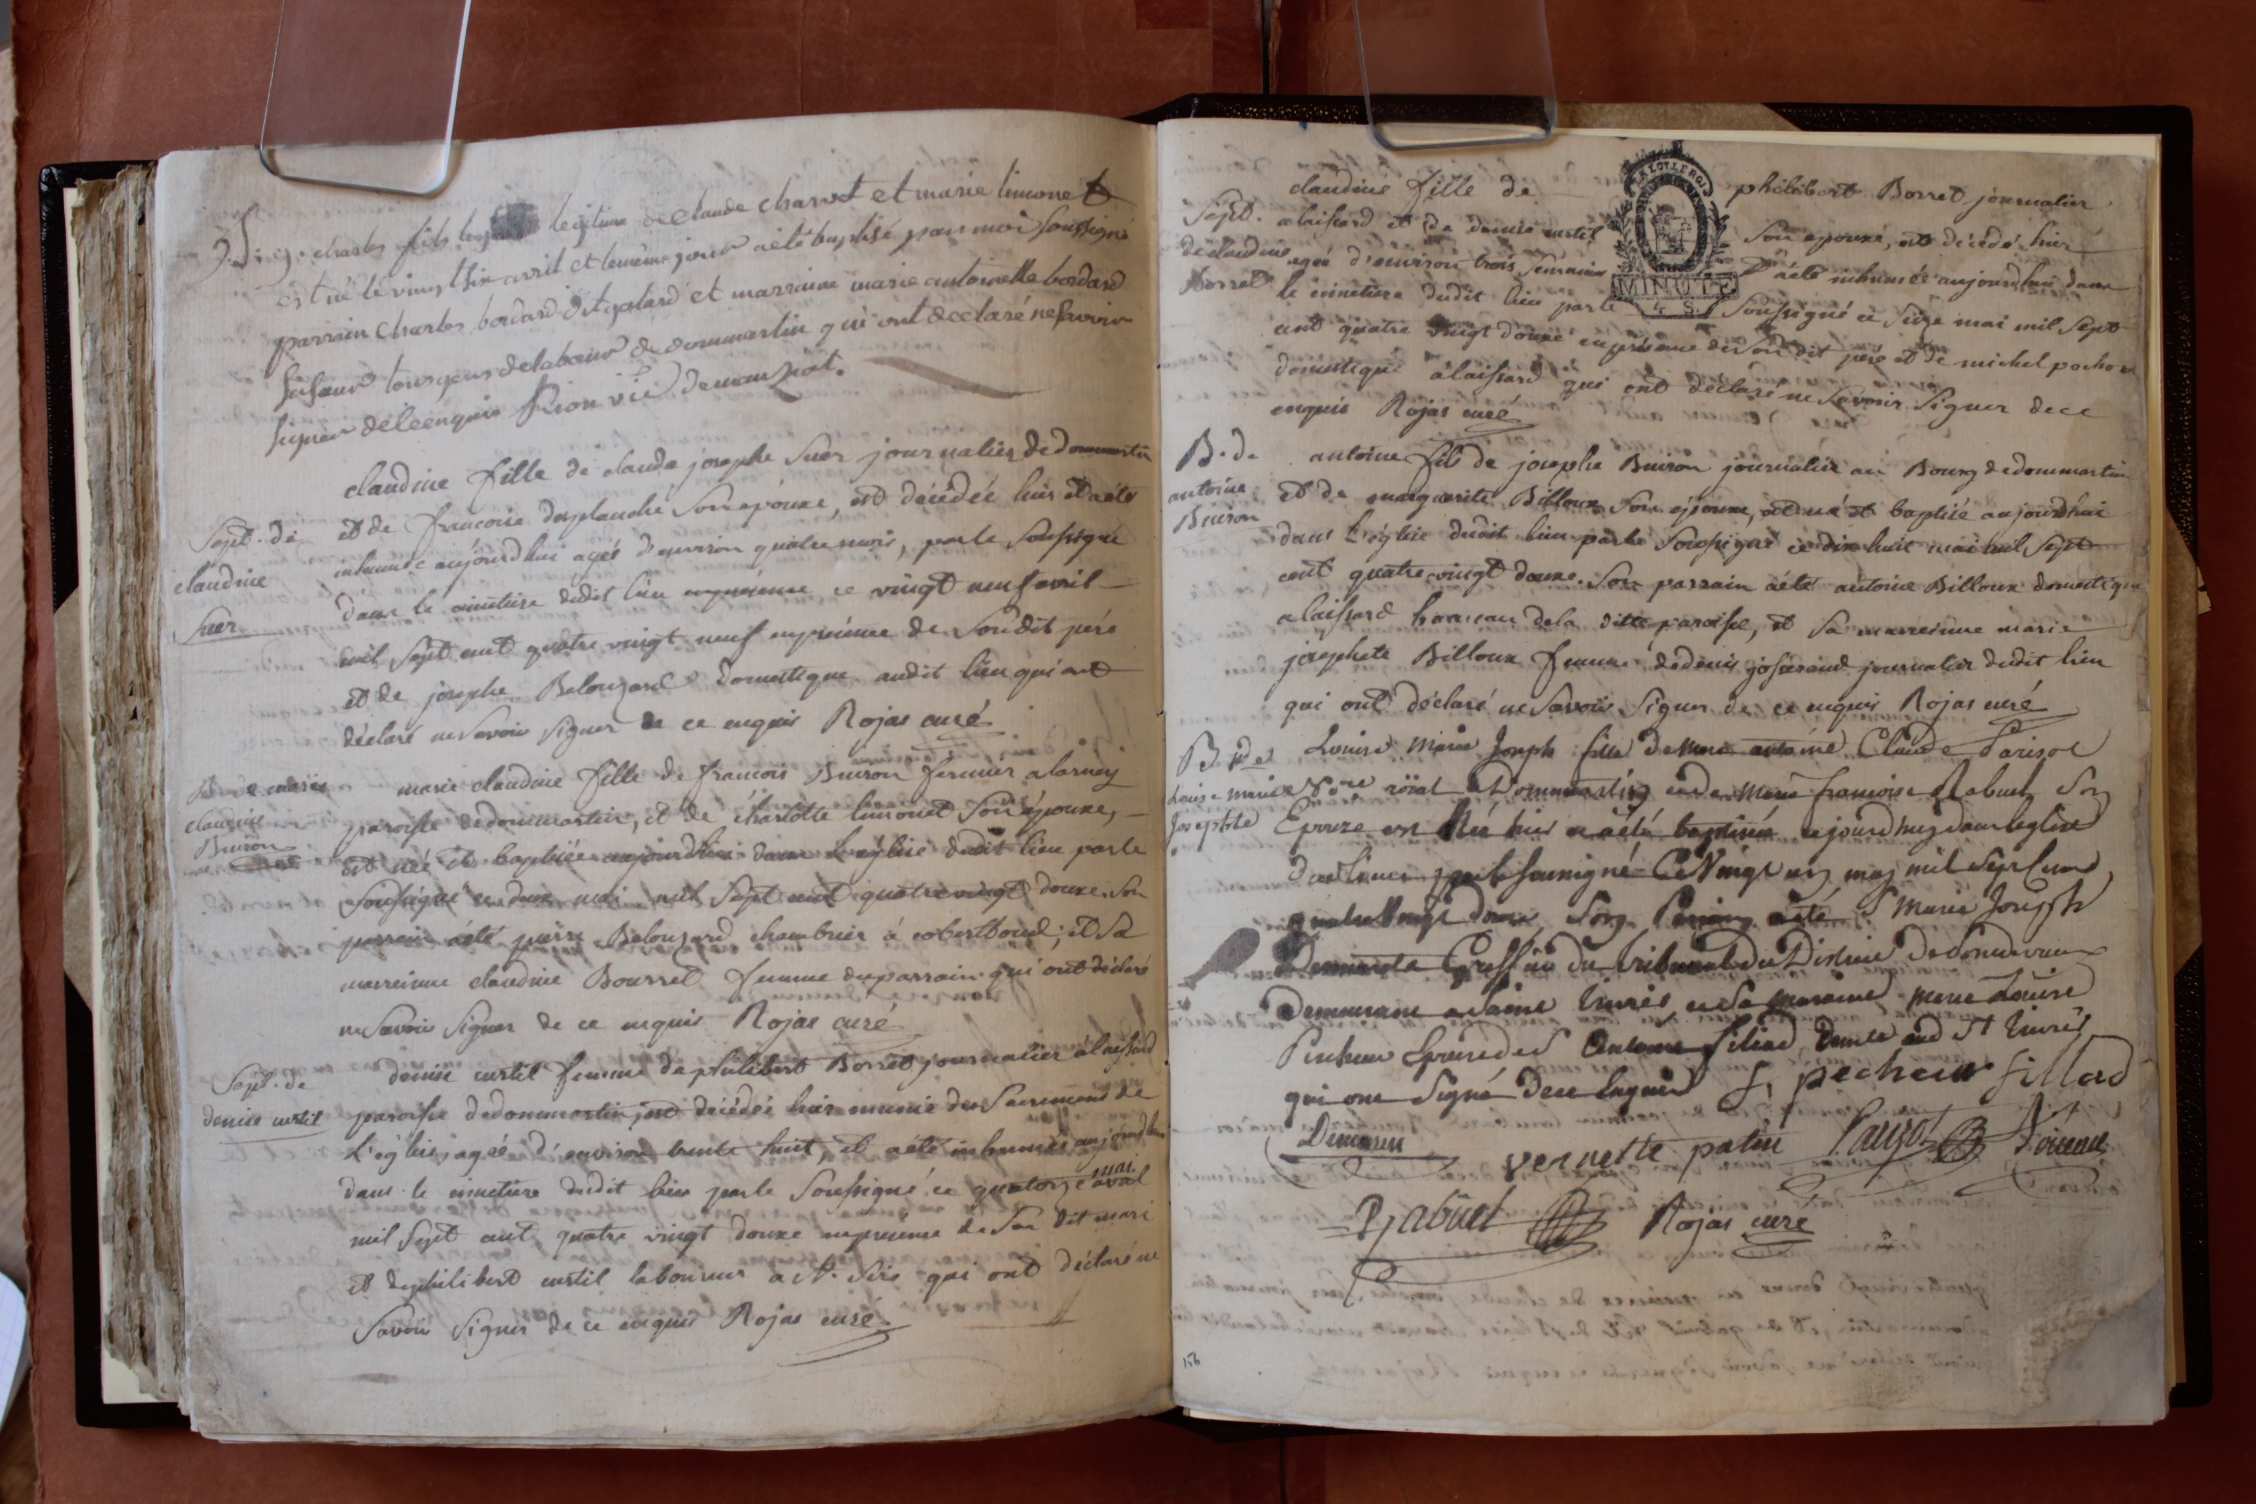 charles fils legitime de Claude charvot et marie limonet
est né le vingt six avril et le même jour a été baptisé par moi soussigné
parrain charles bordard dit galard et marraine marie antoinette bordard
de dommartin qui ont declaré ne savoir
signer de ce enquis Pion vic. de
claudine fille de claude josephe Suer journalier de dommartin
Sept. de
claudine
Suer
et de francoise desplanche son epouse, est décédée hier et a été
inhumée aujourd'hui agée d'environ quatre mois, par le soussigné
dans le cimetiere dudit lieu en présence ce vingt neuf avril
mil sept cent quatre vingt neuf en présence de son dit pere
et de josephe Belouzard domestique audit lieu qui ont
déclaré ne savoir signer de ce enquis Rojas curé
B. de marie
claudine
Buiron
marie claudine fille de francois Buiron fermier a larney
paroisse de dommartin, et de charlotte limonet son épouse,
est née et baptisée aujourd'hui dans l'église dudit lieu par le
soussigné ce deux mai mil sept cent quatre vingt douze. son
parrain a été pierre Belouzard chambrier à ; et sa
marreinne claudine Bourret femme du parrain qui ont déclaré
ne savoir signer de ce enquis Rojas curé
Sept. de
denise curtil
denise curtil femme de philibert Borret journalier à laissard
paroisse de dommartin est décédée hier munie des Sacremens de
L'église, agée d'environ trente huit, et a été inhumée aujourd'hui
dans le cimetiere dudit lieu par le soussigné ce quatorze avril mai
mil sept cent quatre vingt douze en présence de son dit mari
et de philibert curtil laboureur a qui ont déclaré ne
savoir signer de ce enquis Rojas curé
Sept.
de claudine
Borret
claudine fille de philibert Borret journalier
a laissard et de denise curtil son epouse, est décédé hier
agée d'environ trois semaines a été inhumée aujourd'hui dans
le cimetiere dudit lieu par le soussigné ce seize mai mil sept
cent quatre vingt douze en présence de son dit père et de michel pochon
domestique à laissard qui ont déclaré ne savoir signer de ce
enquis Rojas curé
LA LOI LE ROI
MINUTE
4 S.
B. de
antoine
Buiron
antoine fils de josephe Buiron journalier au Bourg de dommartin
et de marguerite Billoux son épouse, est né et baptisé aujourd'hui
dans l'église dudit lieu par le soussigné ce dix huit mai mil sept
cent quatre vingt douze. son parrain a été antoine Billoux domestique
a laissard hameau de la ditte paroisse, et sa marreinne marie
josephete Billoux femme de denis josserand journalier dudit lieu
qui ont déclaré ne savoir signer de ce enquis Rojas curé
B. de
Louise marie
Josephte
Louise Marie Joseph fille de antoine Claude Parisot
roial a Dommartin et de Marie francoise Rabuel son
Epouze est Née hier et a été baptisée ce jourd'huy dans leglise
dud lieu par le soussigné Ce Vingt un may mil sept cent
quatre Vingt douze son Parrain a été Marie Joseph
Greffier du tribunal du District
Demeurant a Saint et sa maraine marie Louise
qui ont signé de ce Enquis pecheur fillard
vernette patin Parizot
Rabuel Rojas curé
156